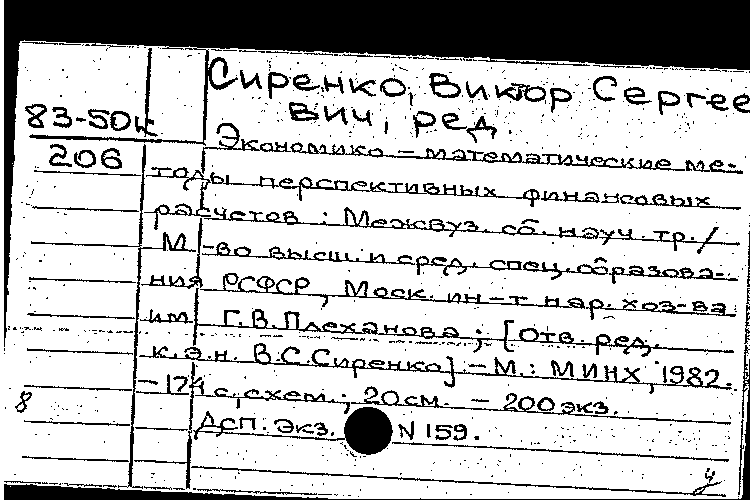 Сиренко, Виктор Сергее
вич, ред.
83-50к
206
Экономико-математические ме-
тоды перспективных финансовых
расчетов : Межвуз. сб. науч. тр./
М-во высш. и сред. спец. образова-
ния РСФСР, Моск. ин-т нар. хоз-ва
им Г.В.Плеханова ; [Отв. ред.
к.э.н. В.С.Сиренко] - М.: МИНХ, 1982.
-174 с., схем. ; 20 см. - 200 экз.
8
ДСП. Экз. N 159.